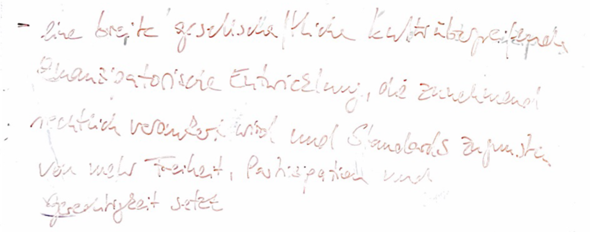 - eine breite gesellschaftliche kulturübergreifende
emanzipatorische Entwicklung, die zunehmend
rechtlich verankert wird und Standards zugunsten
von mehr Freiheit, Partizipation und
Gerechtigkeit setzt